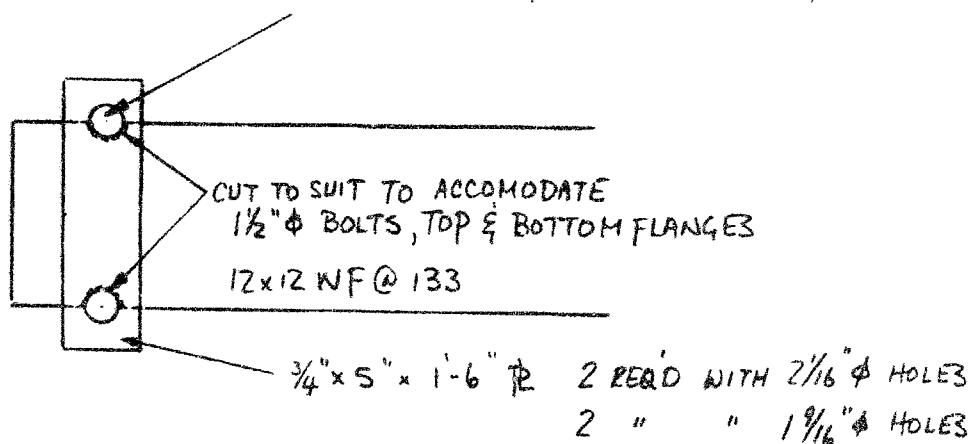 CUT TO SUIT TO ACCOMODATE
1½"⌀ BOLTS, TOP & BOTTOM FLANGES
12x12 WF @ 133
¾" x 5" x 1'-6" ℄ 2 REQ'D WITH 2 1/16"⌀ HOLES
2 " " 1 9/16"⌀ HOLES